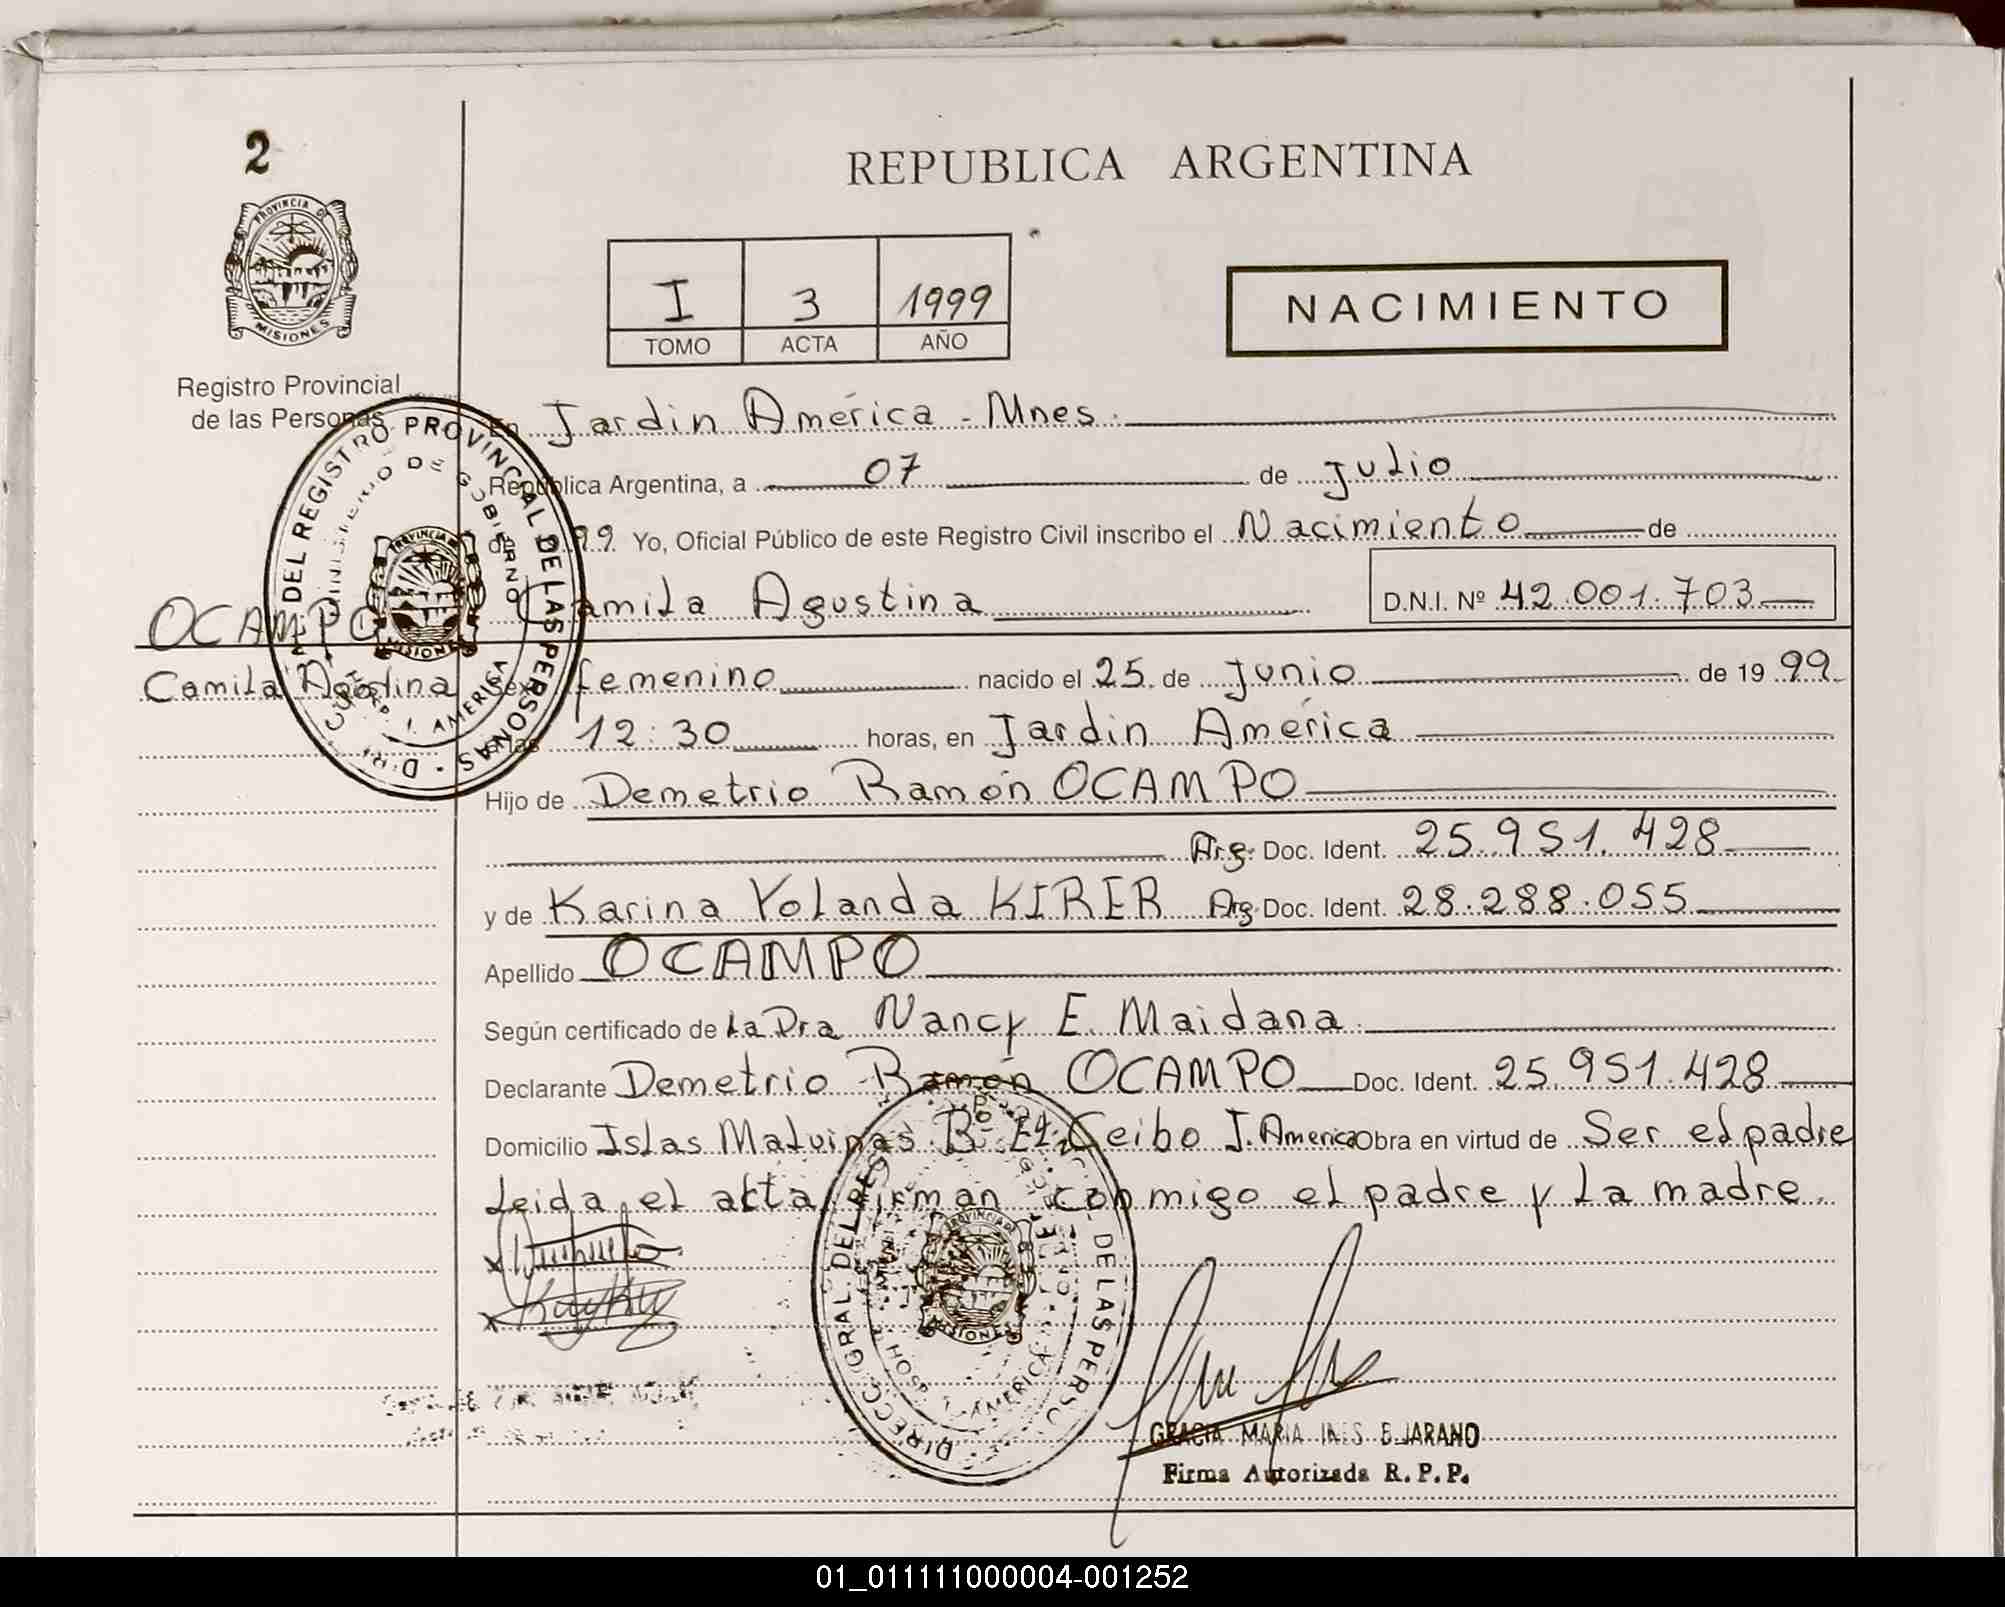 2
REPUBLICA ARGENTINA
PROVINCIA D
MISIONES
I 3 1999
TOMO ACTA AÑO
NACIMIENTO
Registro Provincial
de las Personas
En Jardin América - Mnes.
República Argentina, a 07 de Julio
de 99 Yo, Oficial Público de este Registro Civil inscribo el Nacimiento de
OCAMPO
Camila Agostina
Camila Agustina D.N.I. Nº 42.001.703
Sexo femenino nacido el 25 de Junio de 1999
a las 12:30 horas, en Jardin América
Hijo de Demetrio Ramón OCAMPO
Arg. Doc. Ident. 25.951.428
y de Karina Yolanda KIRER Arg. Doc. Ident. 28.288.055
Apellido OCAMPO
Según certificado de La Dra Nancy E. Maidana
Declarante Demetrio Ramón OCAMPO Doc. Ident. 25.951.428
Domicilio Islas Malvinas Bº El Ceibo J. America Obra en virtud de Ser el padre
Leida el acta, firman conmigo el padre y la madre.
DEL REGISTRO PROVINCIAL DE LAS PERSONAS
MINISTERIO DE GOBIERNO
PROVINCIA D
MISIONES
HOSP. J. AMERICA
DIRECC. GRAL. DEL REG DE LAS PERSO
PROVINCIA D
MISIONES
HOSP. J. AMERICA
GRACIA MARIA INES BEJARANO
Firma Autorizada R.P.P.
01_011111000004-001252